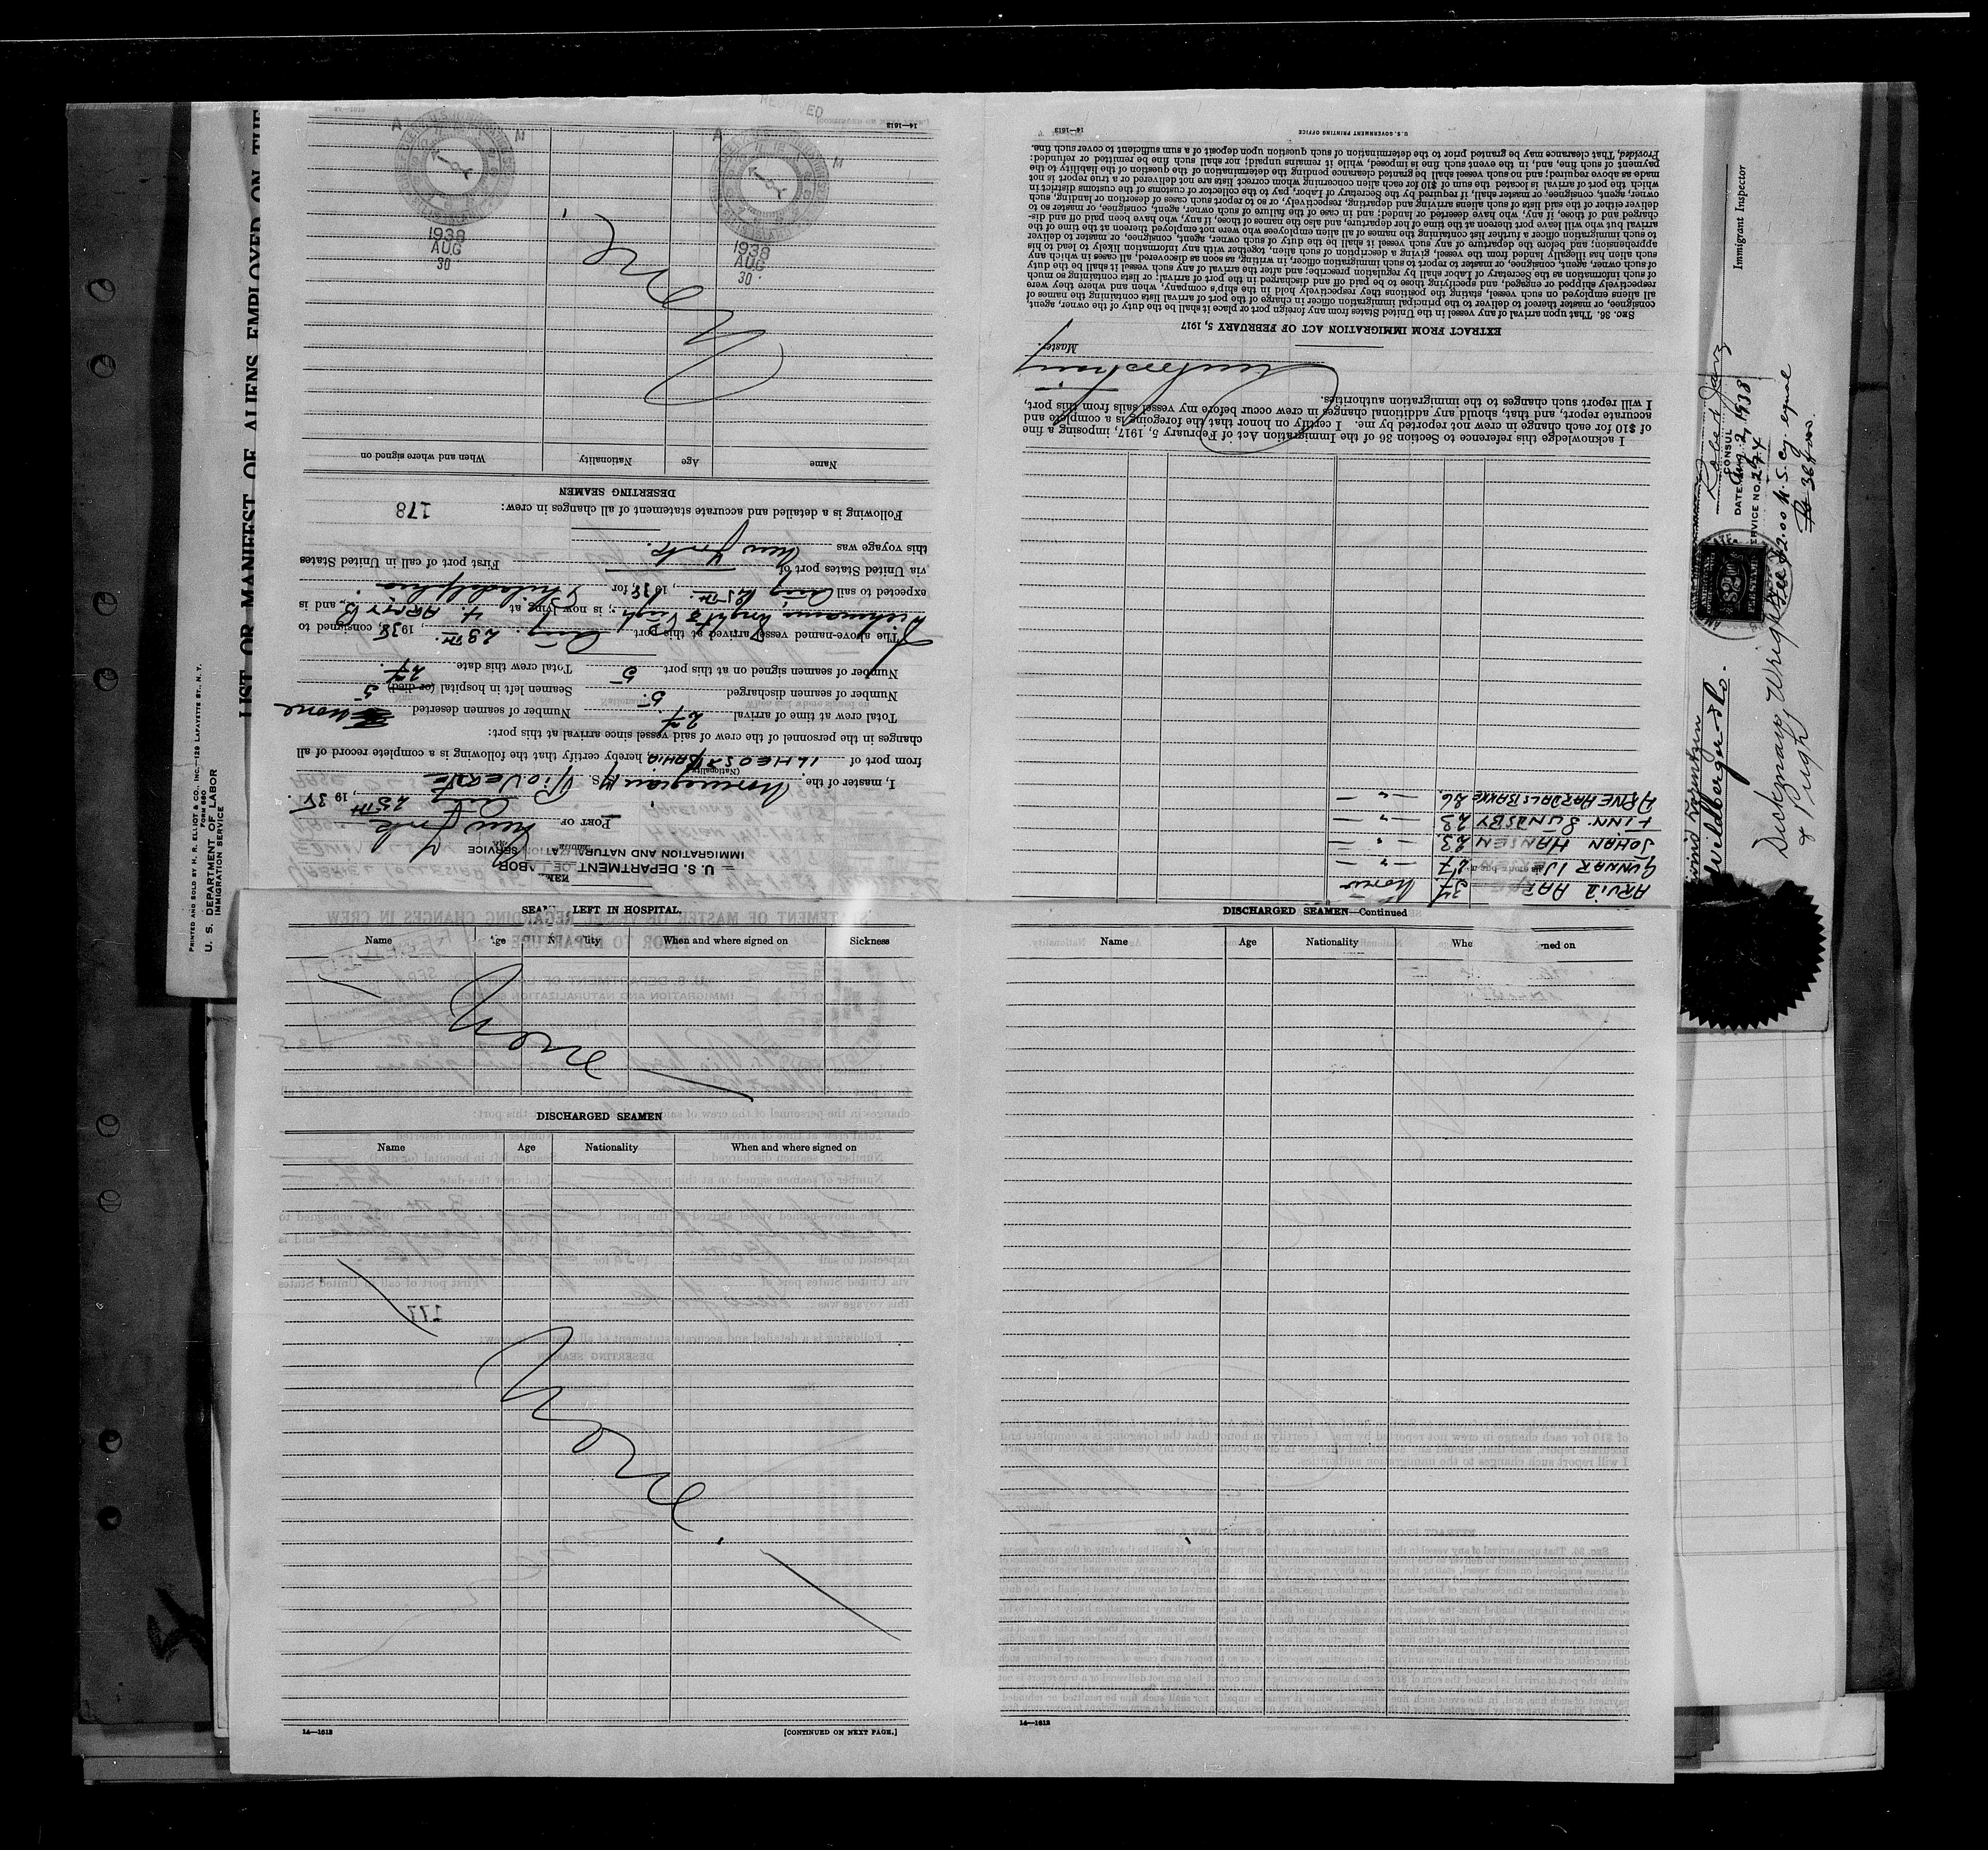 U. S. DEPARTMENT OF LABOR
IMMIGRATION AND NATURALIZATION SERVICE
PORT OF New York
Aug 25TH, 1938.
I, master of the Norwegian M/S. RIO VERDE
(Nationality)
from port of ILHEOS BAHIA, hereby certify that the following is a complete record of all
changes in the personnel of the crew of said vessel since arrival at this port:
Total crew at time of arrival 27 Number of seamen deserted None
Number of seamen discharged 5. Seamen left in hospital (or died)
Number of seamen signed on at this port 5 Total crew this date 27.
The above-named vessel arrived at this port Aug. 23TH, 1938, consigned to
Dichmann Wright & Pugh; is now lying at ARMY B, and is
expected to sail Aug 25TH, 1938, for Philadelphia.
via United States port of First port of call in United States
this voyage was New York.
Following is a detailed and accurate statement of all changes in crew:
178
DESERTING SEAMEN
Name Age Nationality When and where signed on
None.
1938
AUG
30
1938
AUG
30
14—1613
RECEIVED
ARVID 34 Norw
GUNNAR IVERSEN 27 — " —
JOHAN HANSEN 23. — " —
FINN SUNDSBY 23 — " —
ARNE HARDALSBAKKE 26. — " —
I acknowledge this reference to Section 36 of the Immigration Act of February 5, 1917, imposing a fine
of $10 for each change in crew not reported by me. I certify on honor that the foregoing is a complete and
accurate report, and that, should any additional changes in crew occur before my vessel sails from this port,
I will report such changes to the immigration authorities.
Master.
EXTRACT FROM IMMIGRATION ACT OF FEBRUARY 5, 1917
SEC. 36. That upon arrival of any vessel in the United States from any foreign port or place it shall be the duty of the owner, agent,
consignee, or master thereof to deliver to the principal immigration officer in charge of the port of arrival lists containing the names of
all aliens employed on such vessel, stating the positions they respectively hold in the ship's company, when and where they were
respectively shipped or engaged, and specifying those to be paid off and discharged in the port of arrival; or lists containing so much
of such information as the Secretary of Labor shall by regulation prescribe; and after the arrival of any such vessel it shall be the duty
of such owner, agent, consignee, or master to report to such immigration officer, in writing, as soon as discovered, all cases in which any
such alien has illegally landed from the vessel, giving a description of such alien, together with any information likely to lead to his
apprehension; and before the departure of any such vessel it shall be the duty of such owner, agent, consignee, or master to deliver
to such immigration officer a further list containing the names of all alien employees who were not employed thereon at the time of the
arrival but who will leave port thereon at the time of her departure, and also the names of those, if any, who have been paid off and dis-
charged and of those, if any, who have deserted or landed; and in case of the failure of such owner, agent, consignee, or master so to
deliver either of the said lists of such aliens arriving and departing, respectively, or so to report such cases of desertion or landing, such
owner, agent, consignee, or master shall, if required by the Secretary of Labor, pay to the collector of customs of the customs district in
which the port of arrival is located the sum of $10 for each alien concerning whom correct lists are not delivered or a true report is not
made as above required; and no such vessel shall be granted clearance pending the determination of the question of the liability to the
payment of such fine, and, in the event such fine is imposed, while it remains unpaid; nor shall such fine be remitted or refunded:
Provided, That clearance may be granted prior to the determination of such question upon deposit of a sum sufficient to cover such fine.
14—1613 U. S. GOVERNMENT PRINTING OFFICE
LEFT IN HOSPITAL.
Name Nationality When and where signed on Sickness
None
DISCHARGED SEAMEN
Name Age Nationality When and where signed on
177
None.
14—1613 [CONTINUED ON NEXT PAGE.]
DISCHARGED SEAMEN—Continued
Name Age Nationality
14—1613
PRINTED AND SOLD BY H. R. ELLIOT & CO., INC.—129 LAFAYETTE ST., N. Y.
FORM 680
U. S. DEPARTMENT OF LABOR
IMMIGRATION SERVICE
LIST OR MANIFEST OF ALIENS EMPLOYED ON THE
Immigrant Inspector
CONSUL
DATE Aug. 2, 1938
SERVICE NO. 274
FEE $2.00 U.S. Cy. equal
Wildberger & Co.
Dichmann, Wright
& Pugh
AMERICAN
$2
FEE STAMP
4